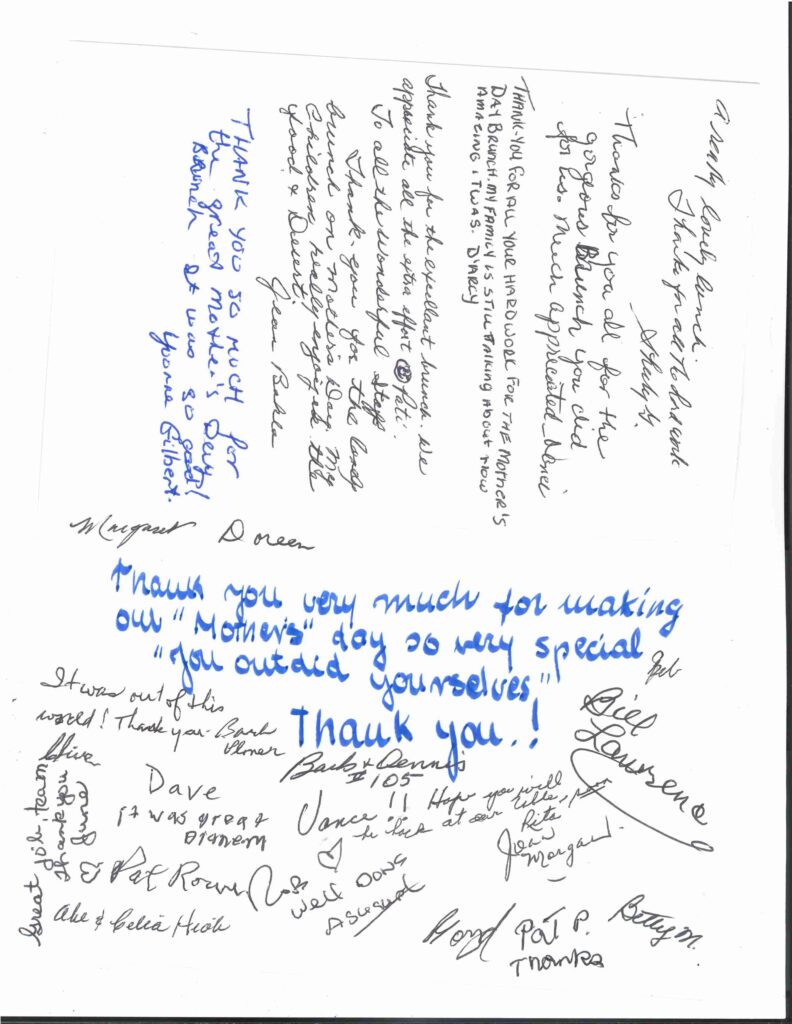 A really lovely lunch.
Thanks for all the hard work
Thanks for you all for the
gorgeous Brunch you did
for us. Much appreciated
THANK-YOU FOR ALL YOUR HARDWORK FOR THE MOTHER'S
DAY BRUNCH. MY FAMILY IS STILL TALKING ABOUT HOW
AMAZING IT WAS. D'ARCY
Thank you for the excellent brunch. We
appreciate all the extra effort Pati.
To all the wonderful Staff
Thank-you for the lovely
brunch on Mother's Day. My
Children really enjoyed the
food & Desert!
Jean
THANK YOU SO MUCH for
the great Mother's Day
BRUNCH It was so good!
Yvonne Gilbert.
Margaret Doreen
Thank you very much for making
our "Mother's" day so very special
"You outdid yourselves"
Thank you.!
It was out of this
world! Thank you - Barb
Bill
Barb & Dennis
# 105
Great job, team
Thank you
June
Dave
it was great
Vance!! Hope you will
be back at our table,
Rita
Jean
Margaret.
Pat
Well Done
Abe & Celia
Lloyd
Pat P.
Thanks
Betty M.